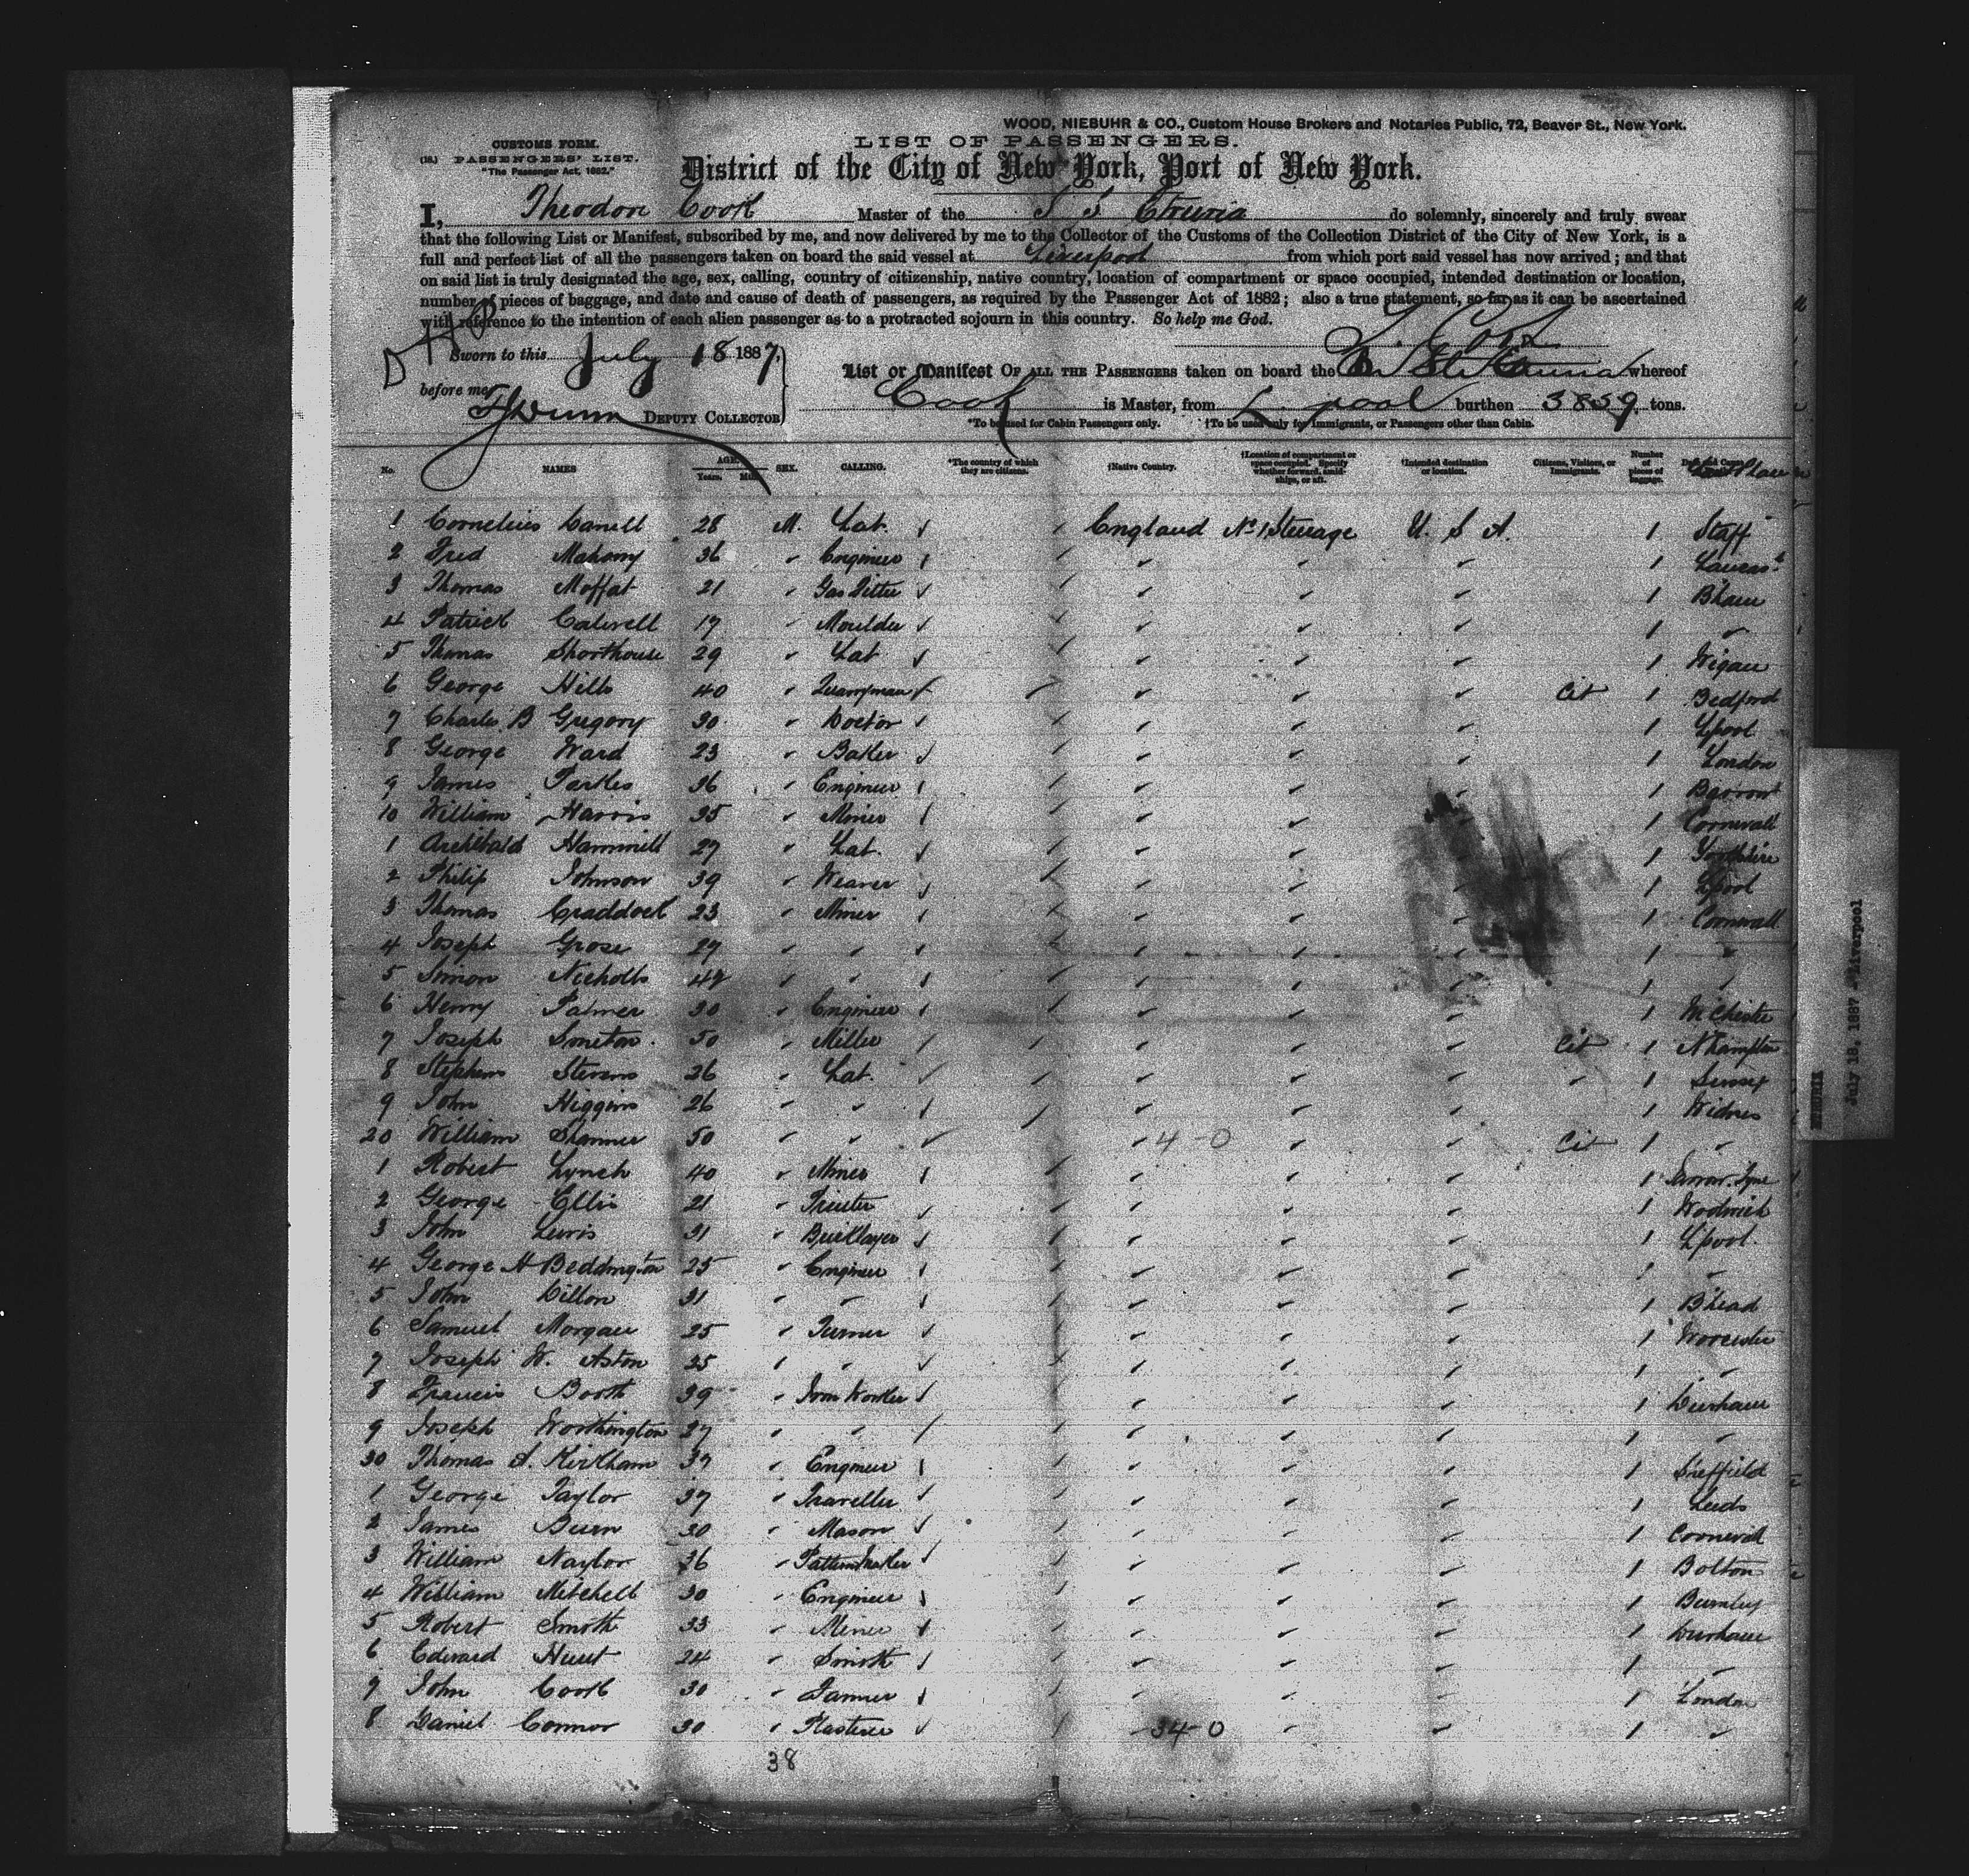 WOOD, NIEBUHR & CO., Custom House Brokers and Notaries Public, 72, Beaver St., New York.
CUSTOMS FORM.
LIST OF PASSENGERS.
(18.) PASSENGERS' LIST.
"The Passenger Act, 1882."
District of the City of New York, Port of New York.
I, Theodore Cook Master of the S S Etruria do solemnly, sincerely and truly swear
that the following List or Manifest, subscribed by me, and now delivered by me to the Collector of the Customs of the Collection District of the City of New York, is a
full and perfect list of all the passengers taken on board the said vessel at Liverpool from which port said vessel has now arrived; and that
on said list is truly designated the age, sex, calling, country of citizenship, native country, location of compartment or space occupied, intended destination or location,
number of pieces of baggage, and date and cause of death of passengers, as required by the Passenger Act of 1882; also a true statement, so far as it can be ascertained
with reference to the intention of each alien passenger as to a protracted sojourn in this country. So help me God.
T. Cook
Sworn to this July 18 1887,
List or Manifest OF ALL THE PASSENGERS taken on board the Br Str Etruria whereof
before me, DEPUTY COLLECTOR
Cook is Master, from L.pool burthen 3839 tons.
*To be used for Cabin Passengers only. †To be used only for Immigrants, or Passengers other than Cabin.
No. NAMES AGE. Years. Mths. SEX. CALLING. *The country of which they are citizens. †Native Country. †Location of compartment or space occupied. Specify whether forward, amidships, or aft. †Intended destination or location. Citizens, Visitors, or Immigrants. Number of pieces of baggage.
1 Cornelius 28 M. Lab. England No 1 Steerage U. S A. 1 Staff
2 Fred Mahony 36 " Engineer 1 Lancas
3 Thomas Moffat 21 " Gas Fitter 1 B'ham
4 Patrick Calwell 17 " Moulder 1 "
5 Thomas Shorthouse 29 " Lab 1 Wigan
6 George Hills 40 " Quarryman Cit 1 Bedford
7 Charles B Gregory 30 " Doctor 1 L'pool
8 George Ward 23 " Baker 1 London
9 James Parkes 36 " Engineer 1 Barrow
10 William Harris 35 " Miner 1 Cornwall
1 Archibald Hammill 27 " Lab. 1 Yorkshire
2 Philip Johnson 39 " Weaver 1 L'pool
3 Thomas Craddock 23 " Miner 1 Cornwall
4 Joseph Grose 27 " " 1 "
5 Simon Nicholls 42 " " 1 "
6 Henry Palmer 30 " Engineer 1 M'Chester
7 Joseph Smeton 50 " Miller Cit 1 N'hampton
8 Stephens Stevens 36 " Lab. " 1 Sussex
9 John Higgins 26 " " 1 Widnes
20 William 50 " " 4-0 Cit 1 "
1 Robert Lynch 40 " Miner 1 Jarrow Tyne
2 George Ellis 21 " Printer 1 Woolwich
3 John Lewis 31 " Bricklayer 1 L'pool
4 George H Beddington 25 " Engineer 1 "
5 John Dillon 31 " " 1 B'head
6 Samuel Morgan 25 " Turner 1 Worcester
7 Joseph W. Aston 25 " " 1 "
8 Francis Booth 39 " Iron Worker 1 Durham
9 Joseph Worthington 27 " " 1 "
30 Thomas A. Kirkham 37 " Engineer 1 Sheffield
1 George Taylor 37 " Traveller 1 Leeds
2 James Burn 30 " Mason 1 Cornwall
3 William Naylor 36 " Pattern Maker 1 Bolton
4 William Mitchell 30 " Engineer 1 Burnley
5 Robert Smith 33 " Miner 1 Durham
6 Edward Hurst 24 " Smith 1 "
7 John Cook 30 " 1 London
8 Daniel Connor 30 " Plasterer 34-0 1 "
38
July 18, 1887 - Liverpool
ETRURIA